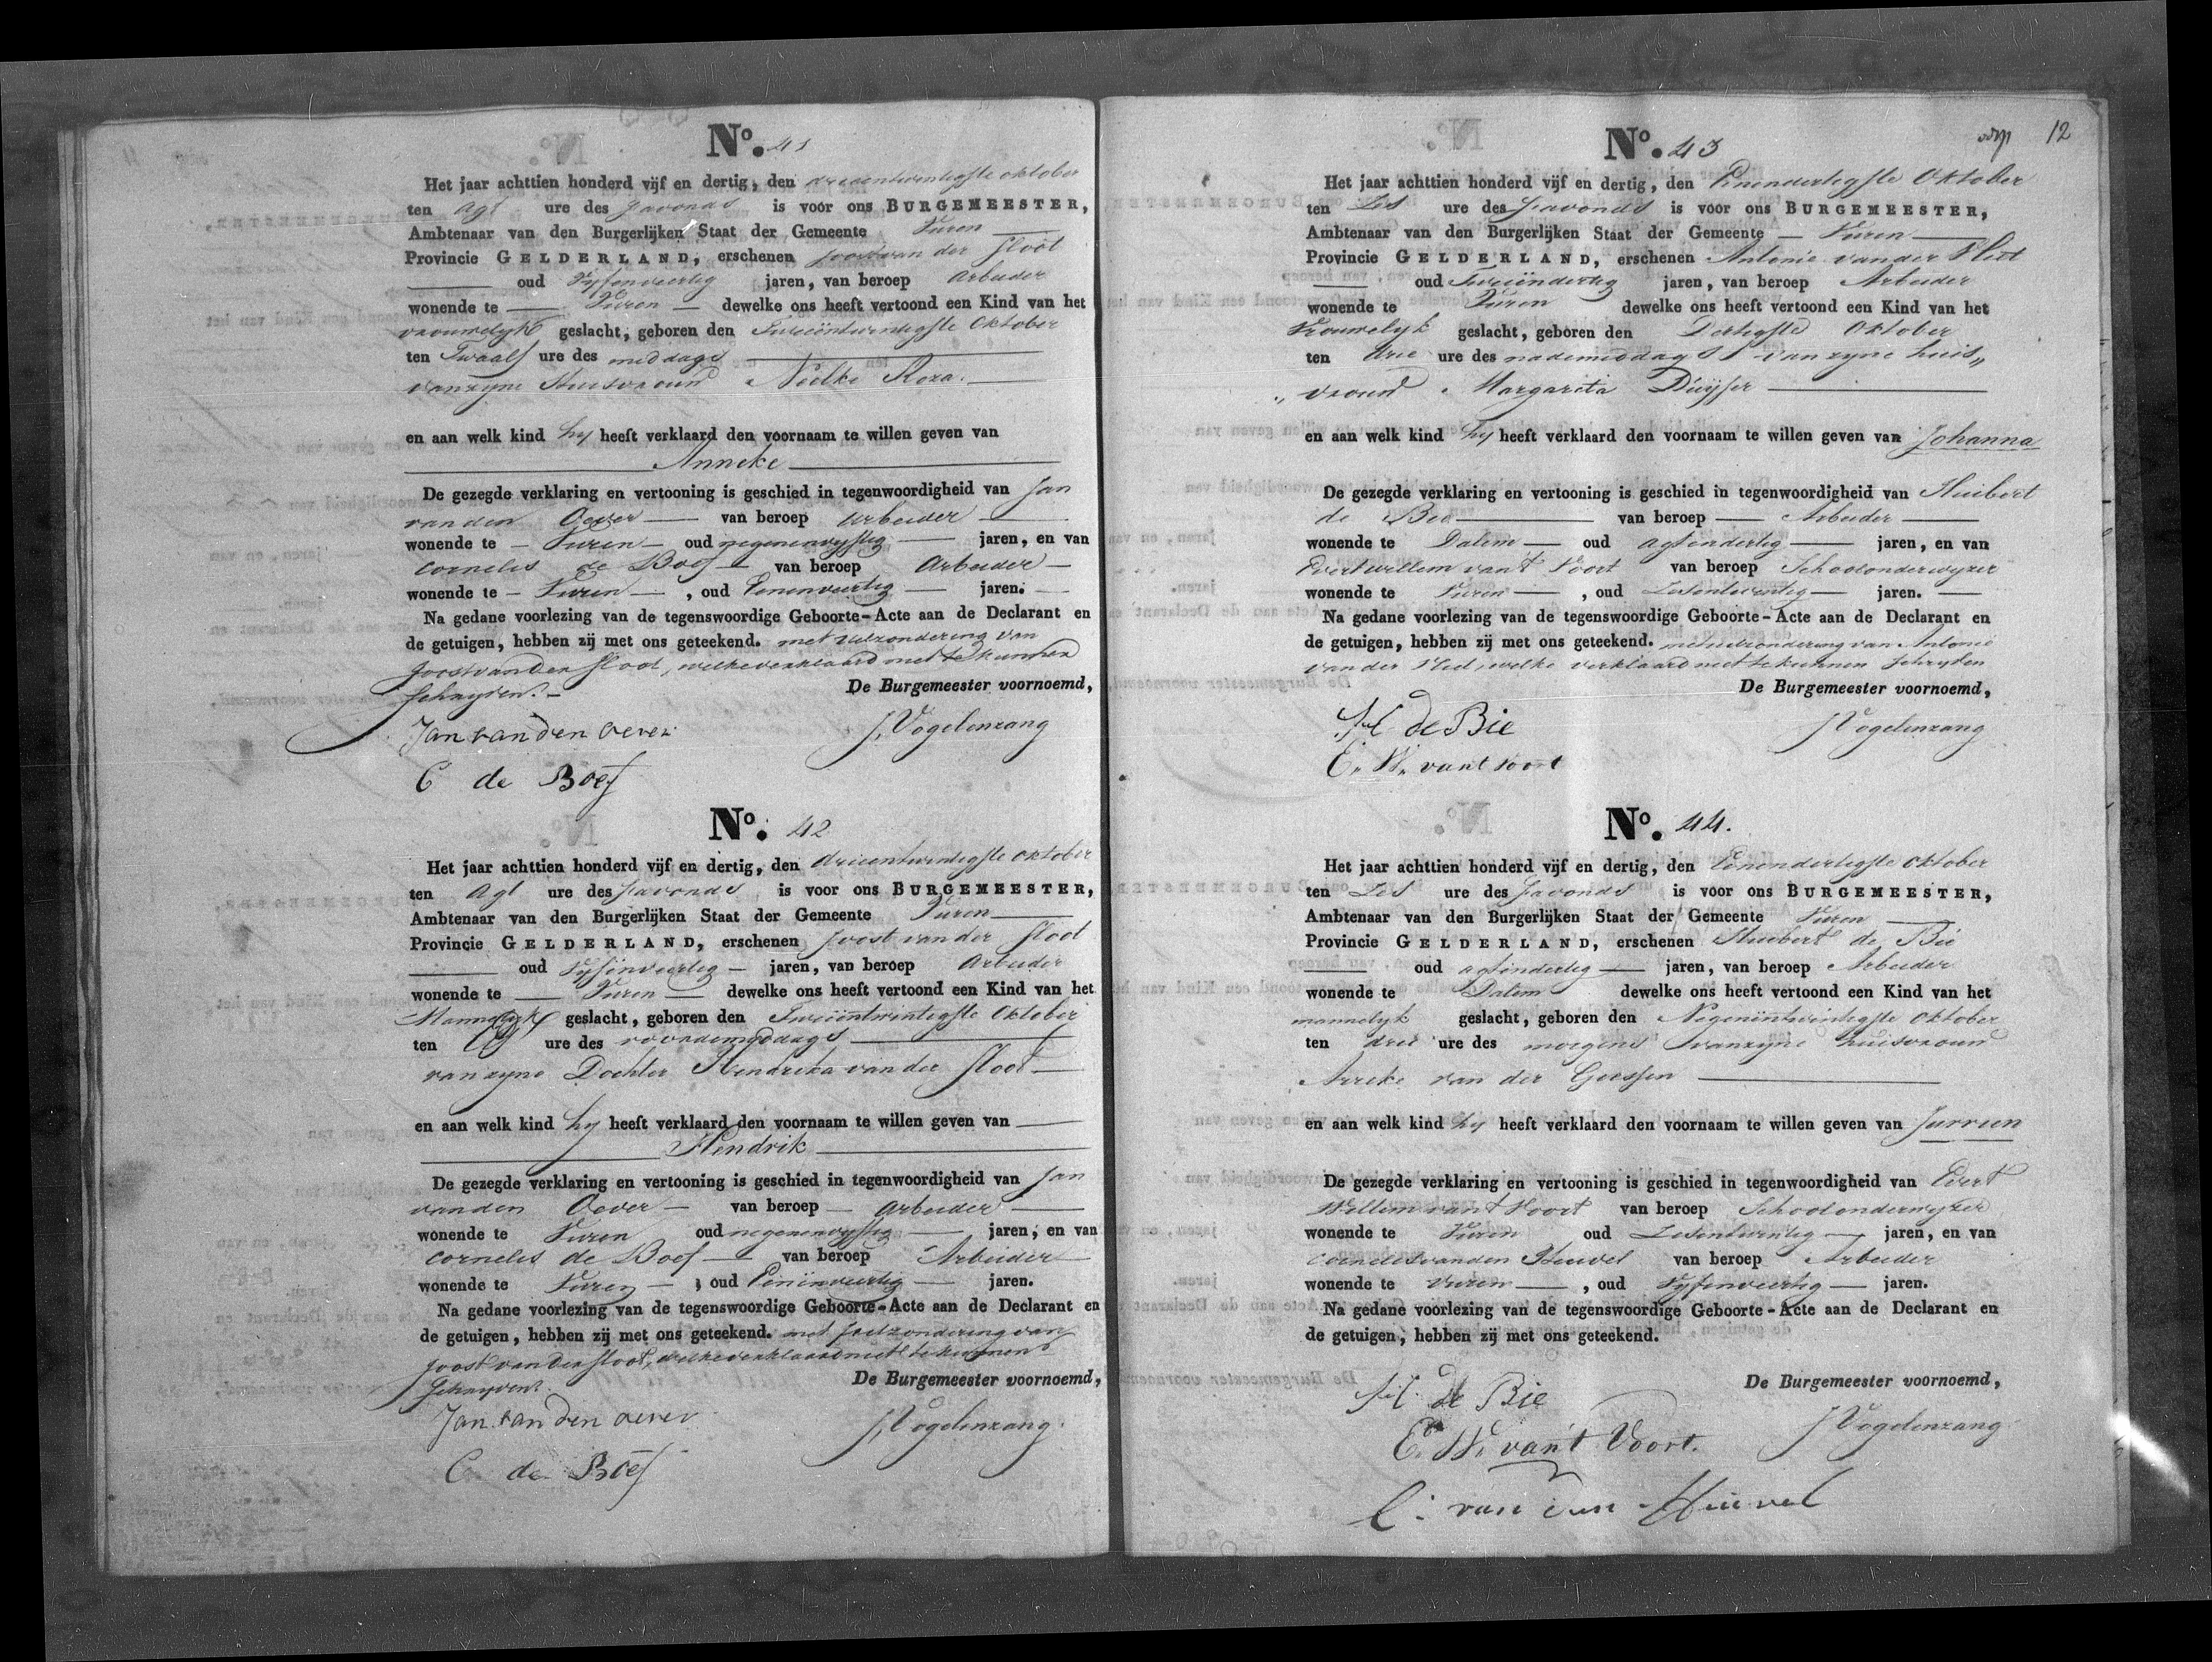 No. 41
Het jaar achttien honderd vijf en dertig, den drieentwentigste oktober
ten Agt ure des savonds is voor ons BURGEMEESTER,
Ambtenaar van den Burgerlijken Staat der Gemeente Vuren
Provincie GELDERLAND, erschenen Joost van der Sloot
oud Vyfenveertig jaren, van beroep Arbeider
wonende te Vuren dewelke ons heeft vertoond een Kind van het
vrouwelyk geslacht, geboren den Tweeëntwentigste Oktober
ten Twaalf ure des middags
van zyne Huisvrouw Neelke Roza.
en aan welk kind hy heeft verklaard den voornaam te willen geven van
Anneke
De gezegde verklaring en vertooning is geschied in tegenwoordigheid van Jan
van den Oever van beroep arbeider
wonende te Vuren oud negenenvyftig jaren, en van
Cornelis de Boef van beroep Arbeider
wonende te Vuren, oud Eenenveertig jaren.
Na gedane voorlezing van de tegenswoordige Geboorte-Acte aan de Declarant en
de getuigen, hebben zij met ons geteekend. met uitzondering van
Joost van der Sloot, welke verklaard niet te kunnen
schryven.
De Burgemeester voornoemd,
Jan van den oever
J. Vogelenzang
C de Boef
No. 42
Het jaar achttien honderd vijf en dertig, den drieentwentigste oktober
ten Agt ure des savonds is voor ons BURGEMEESTER,
Ambtenaar van den Burgerlijken Staat der Gemeente Vuren
Provincie GELDERLAND, erschenen Joost van der Sloot
oud Vyfenveertig jaren, van beroep Arbeider
wonende te Vuren dewelke ons heeft vertoond een Kind van het
Mannelyk geslacht, geboren den Tweeëntwentigste Oktober
ten ure des voordemiddags
van zyne Dochter Hendrika van der Sloot
en aan welk kind hy heeft verklaard den voornaam te willen geven van
Hendrik
De gezegde verklaring en vertooning is geschied in tegenwoordigheid van Jan
van den Oever van beroep arbeider
wonende te Vuren oud negenenvyftig jaren, en van
Cornelis de Boef van beroep Arbeider
wonende te Vuren, oud Eenënveertig jaren.
Na gedane voorlezing van de tegenswoordige Geboorte-Acte aan de Declarant en
de getuigen, hebben zij met ons geteekend. met uitzondering van
Joost van der Sloot, welke verklaard niet te kunnen
schryven.
De Burgemeester voornoemd,
Jan van den oever
J. Vogelenzang
C de Boef
12
No. 43
Het jaar achttien honderd vijf en dertig, den Eenendertigste Oktober
ten Zes ure des savonds is voor ons BURGEMEESTER,
Ambtenaar van den Burgerlijken Staat der Gemeente Vuren
Provincie GELDERLAND, erschenen Antonie van der Vliet
oud Tweeëndertig jaren, van beroep Arbeider
wonende te Vuren dewelke ons heeft vertoond een Kind van het
Vrouwelyk geslacht, geboren den Dertigste Oktober
ten drie ure des nademiddags van zyne huis„
„vrouw Margarita Duijser
en aan welk kind hy heeft verklaard den voornaam te willen geven van Johanna
De gezegde verklaring en vertooning is geschied in tegenwoordigheid van Huibert
de Bie van beroep Arbeider
wonende te Dalem oud agtendertig jaren, en van
Evert willem van t Voort van beroep Schoolonderwyzer
wonende te Vuren, oud Zesentwentig jaren.
Na gedane voorlezing van de tegenswoordige Geboorte-Acte aan de Declarant en
de getuigen, hebben zij met ons geteekend. met uitzondering van Antonie
van der Vliet, welke verklaard niet te kunnen schryven
De Burgemeester voornoemd,
H de Bie
J Vogelenzang
E. W. vant voort
No. 44.
Het jaar achttien honderd vijf en dertig, den Eenendertigste oktober
ten Zes ure des savonds is voor ons BURGEMEESTER,
Ambtenaar van den Burgerlijken Staat der Gemeente Vuren
Provincie GELDERLAND, erschenen Huibert de Bie
oud agtendertig jaren, van beroep Arbeider
wonende te Dalem dewelke ons heeft vertoond een Kind van het
mannelyk geslacht, geboren den Negenëntwintigste Oktober
ten drie ure des morgens van zyne huisvrouw
van der Giessen
en aan welk kind hy heeft verklaard den voornaam te willen geven van Jurrien
De gezegde verklaring en vertooning is geschied in tegenwoordigheid van Evert
Willem van t Voort van beroep Schoolonderwyzer
wonende te Vuren oud Zesentwentig jaren, en van
Cornelis van den Heuvel van beroep Arbeider
wonende te Vuren, oud Vyfenveertig jaren.
Na gedane voorlezing van de tegenswoordige Geboorte-Acte aan de Declarant en
de getuigen, hebben zij met ons geteekend.
De Burgemeester voornoemd,
H. de Bie
J Vogelenzang
E. W. van't Voort.
C. van den Heuvel